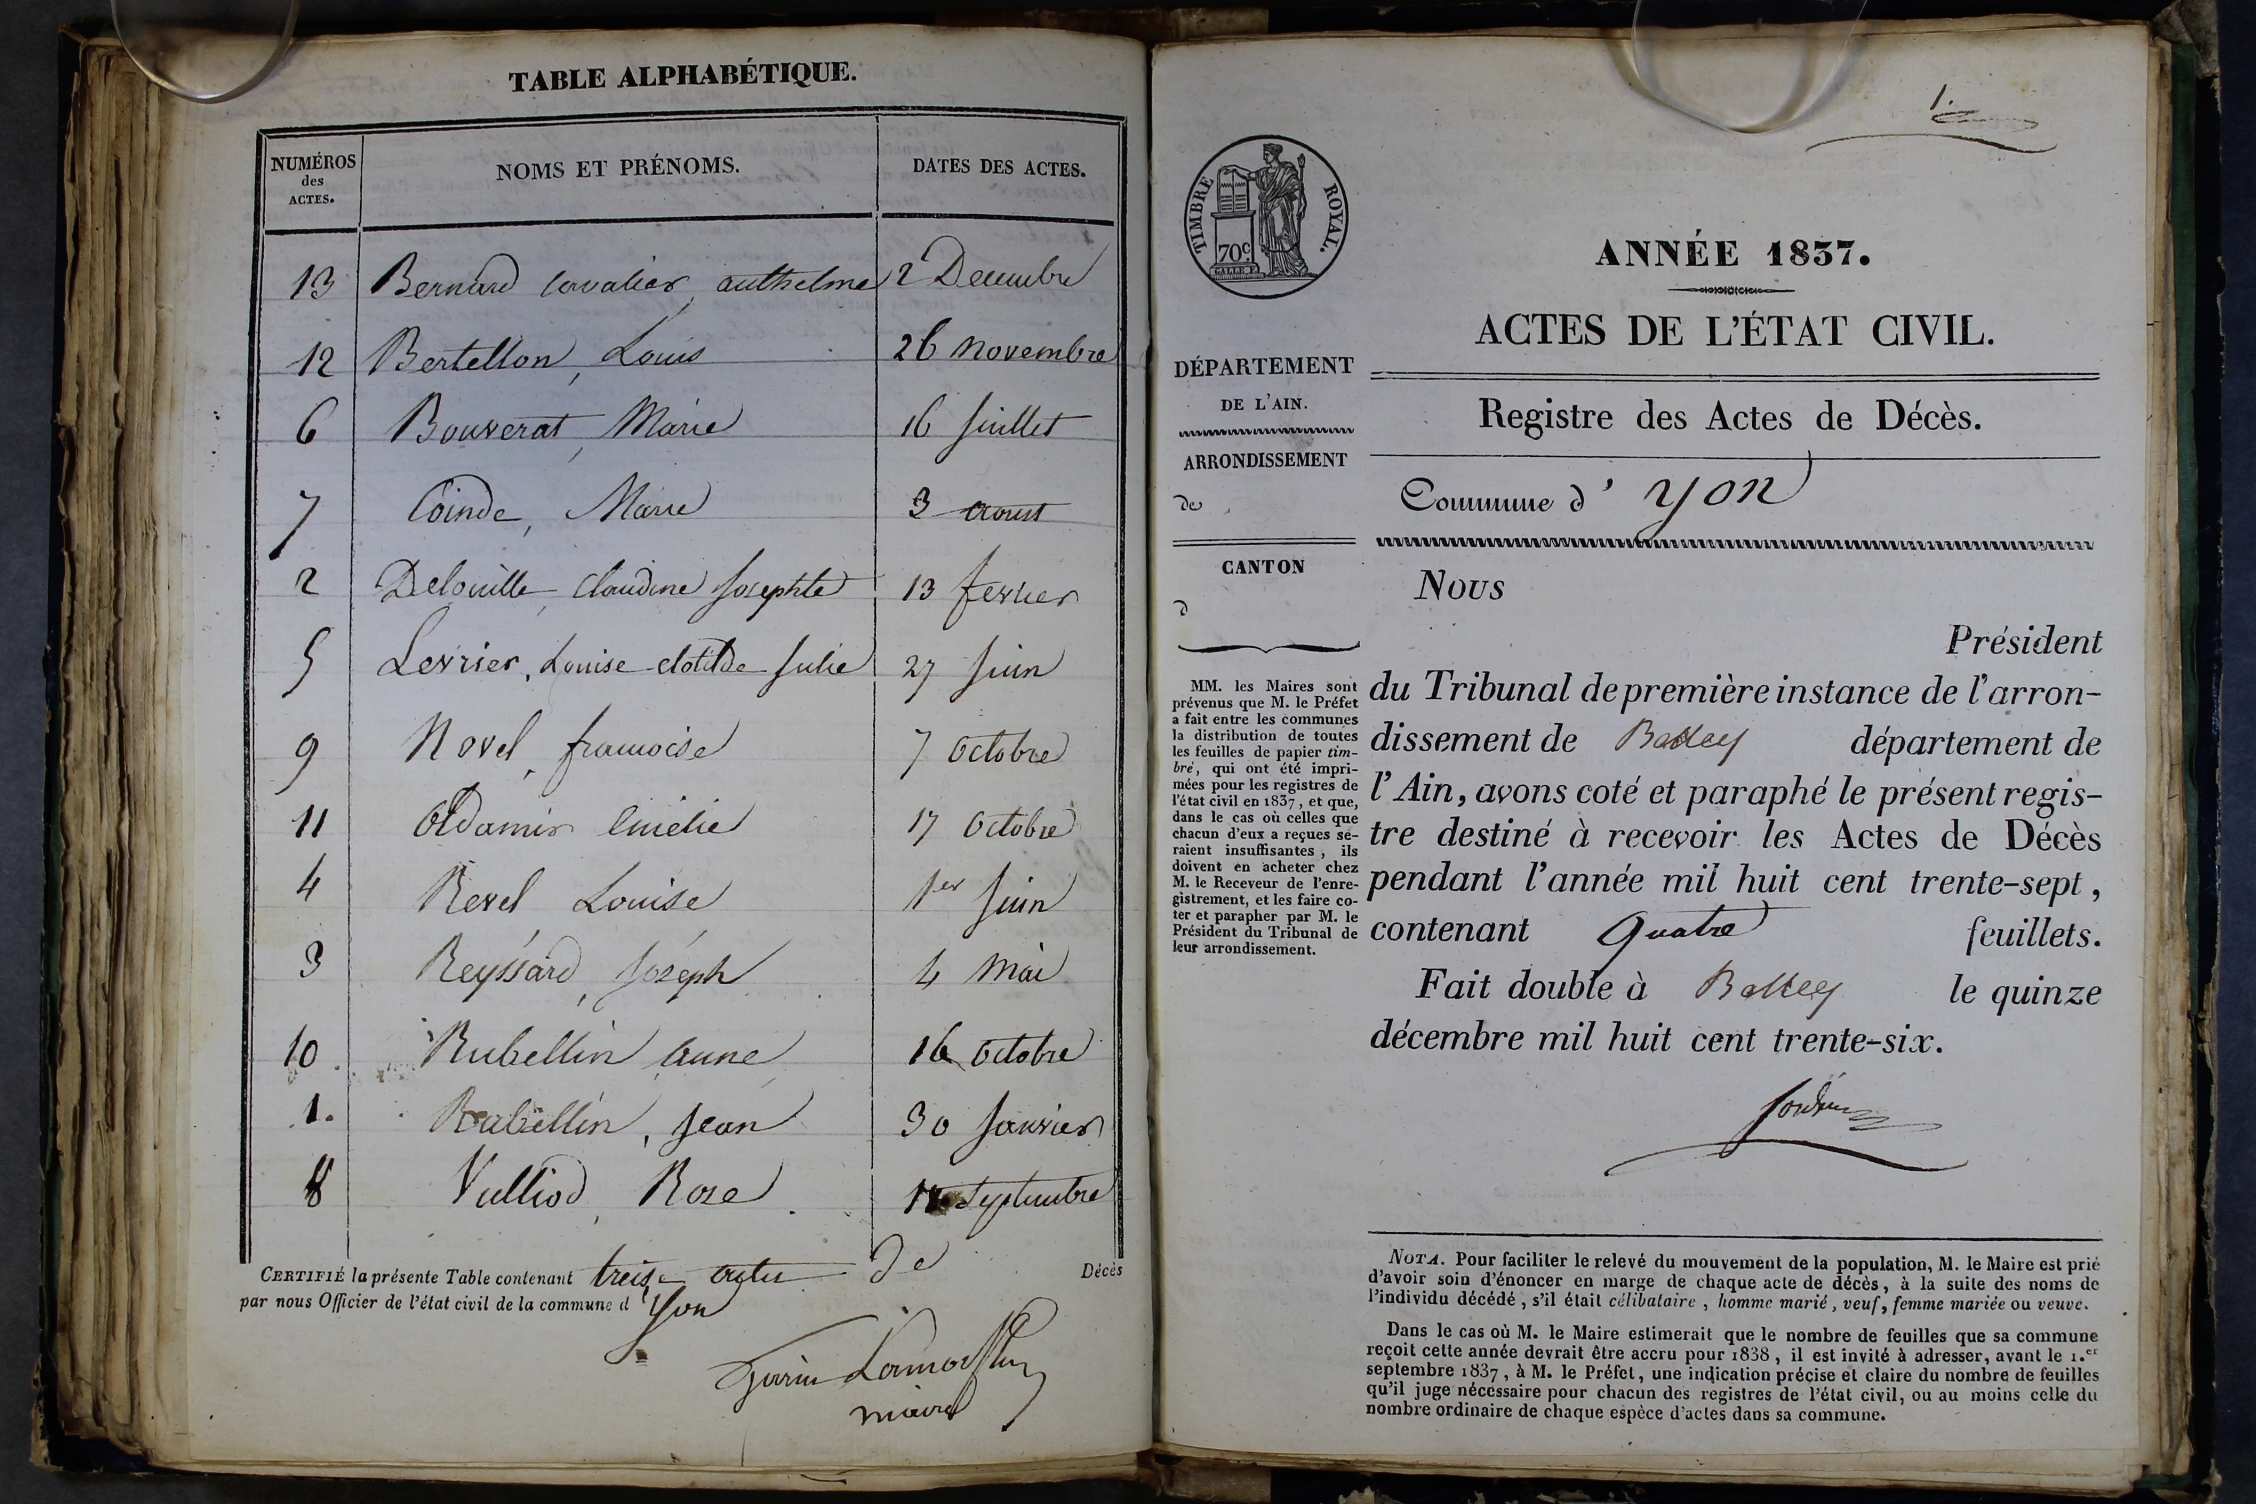 TABLE ALPHABÉTIQUE.
NUMÉROS des ACTES. NOMS ET PRÉNOMS. DATES DES ACTES.
13 Bernard Cavalier, authelme 2 Decembre
12 Bertellon, Louis 26 novembre
6 Bouverat, Marie 16 Juillet
7 Coinde, Marie 3 aoust
2 Delouille, Claudine Josephte 13 fevrier
5 Levrier, Louise clotilde Julie 27 Juin
9 Novel, francoise 7 octobre
11 oldamir Emélie 17 octobre
4 Revel Louise 1er Juin
3 Reyssard, Joseph 4 Mai
10 Rubellin anne 16 octobre
1. Rubellin, Jean 30 Janvier
8 Vulliod, Rose Septembre
CERTIFIÉ la présente Table contenant treize actes de Décès
par nous Officier de l'état civil de la commune d'Yon
maire
1.
TIMBRE ROYAL.
70c.
ANNÉE 1837.
ACTES DE L'ÉTAT CIVIL.
Registre des Actes de Décès.
Commune d' yon
DÉPARTEMENT
DE L'AIN.
ARRONDISSEMENT
de
CANTON
d
MM. les Maires sont
prévenus que M. le Préfet
a fait entre les communes
la distribution de toutes
les feuilles de papier tim-
bré, qui ont été impri-
mées pour les registres de
l'état civil en 1837, et que,
dans le cas où celles que
chacun d'eux a reçues se-
raient insuffisantes, ils
doivent en acheter chez
M. le Receveur de l'enre-
gistrement, et les faire co-
ter et parapher par M. le
Président du Tribunal de
leur arrondissement.
NOUS
Président
du Tribunal de première instance de l'arron-
dissement de Belley département de
l'Ain, avons coté et paraphé le présent regis-
tre destiné à recevoir les Actes de Décès
pendant l'année mil huit cent trente-sept,
contenant quatre feuillets.
Fait double à Belley le quinze
décembre mil huit cent trente-six.
NOTA. Pour faciliter le relevé du mouvement de la population, M. le Maire est prié
d'avoir soin d'énoncer en marge de chaque acte de décès, à la suite des noms de
l'individu décédé, s'il était célibataire, homme marié, veuf, femme mariée ou veuve.
Dans le cas où M. le Maire estimerait que le nombre de feuilles que sa commune
reçoit cette année devrait être accru pour 1838, il est invité à adresser, avant le 1.er
septembre 1837, à M. le Préfet, une indication précise et claire du nombre de feuilles
qu'il juge nécessaire pour chacun des registres de l'état civil, ou au moins celle du
nombre ordinaire de chaque espèce d'actes dans sa commune.